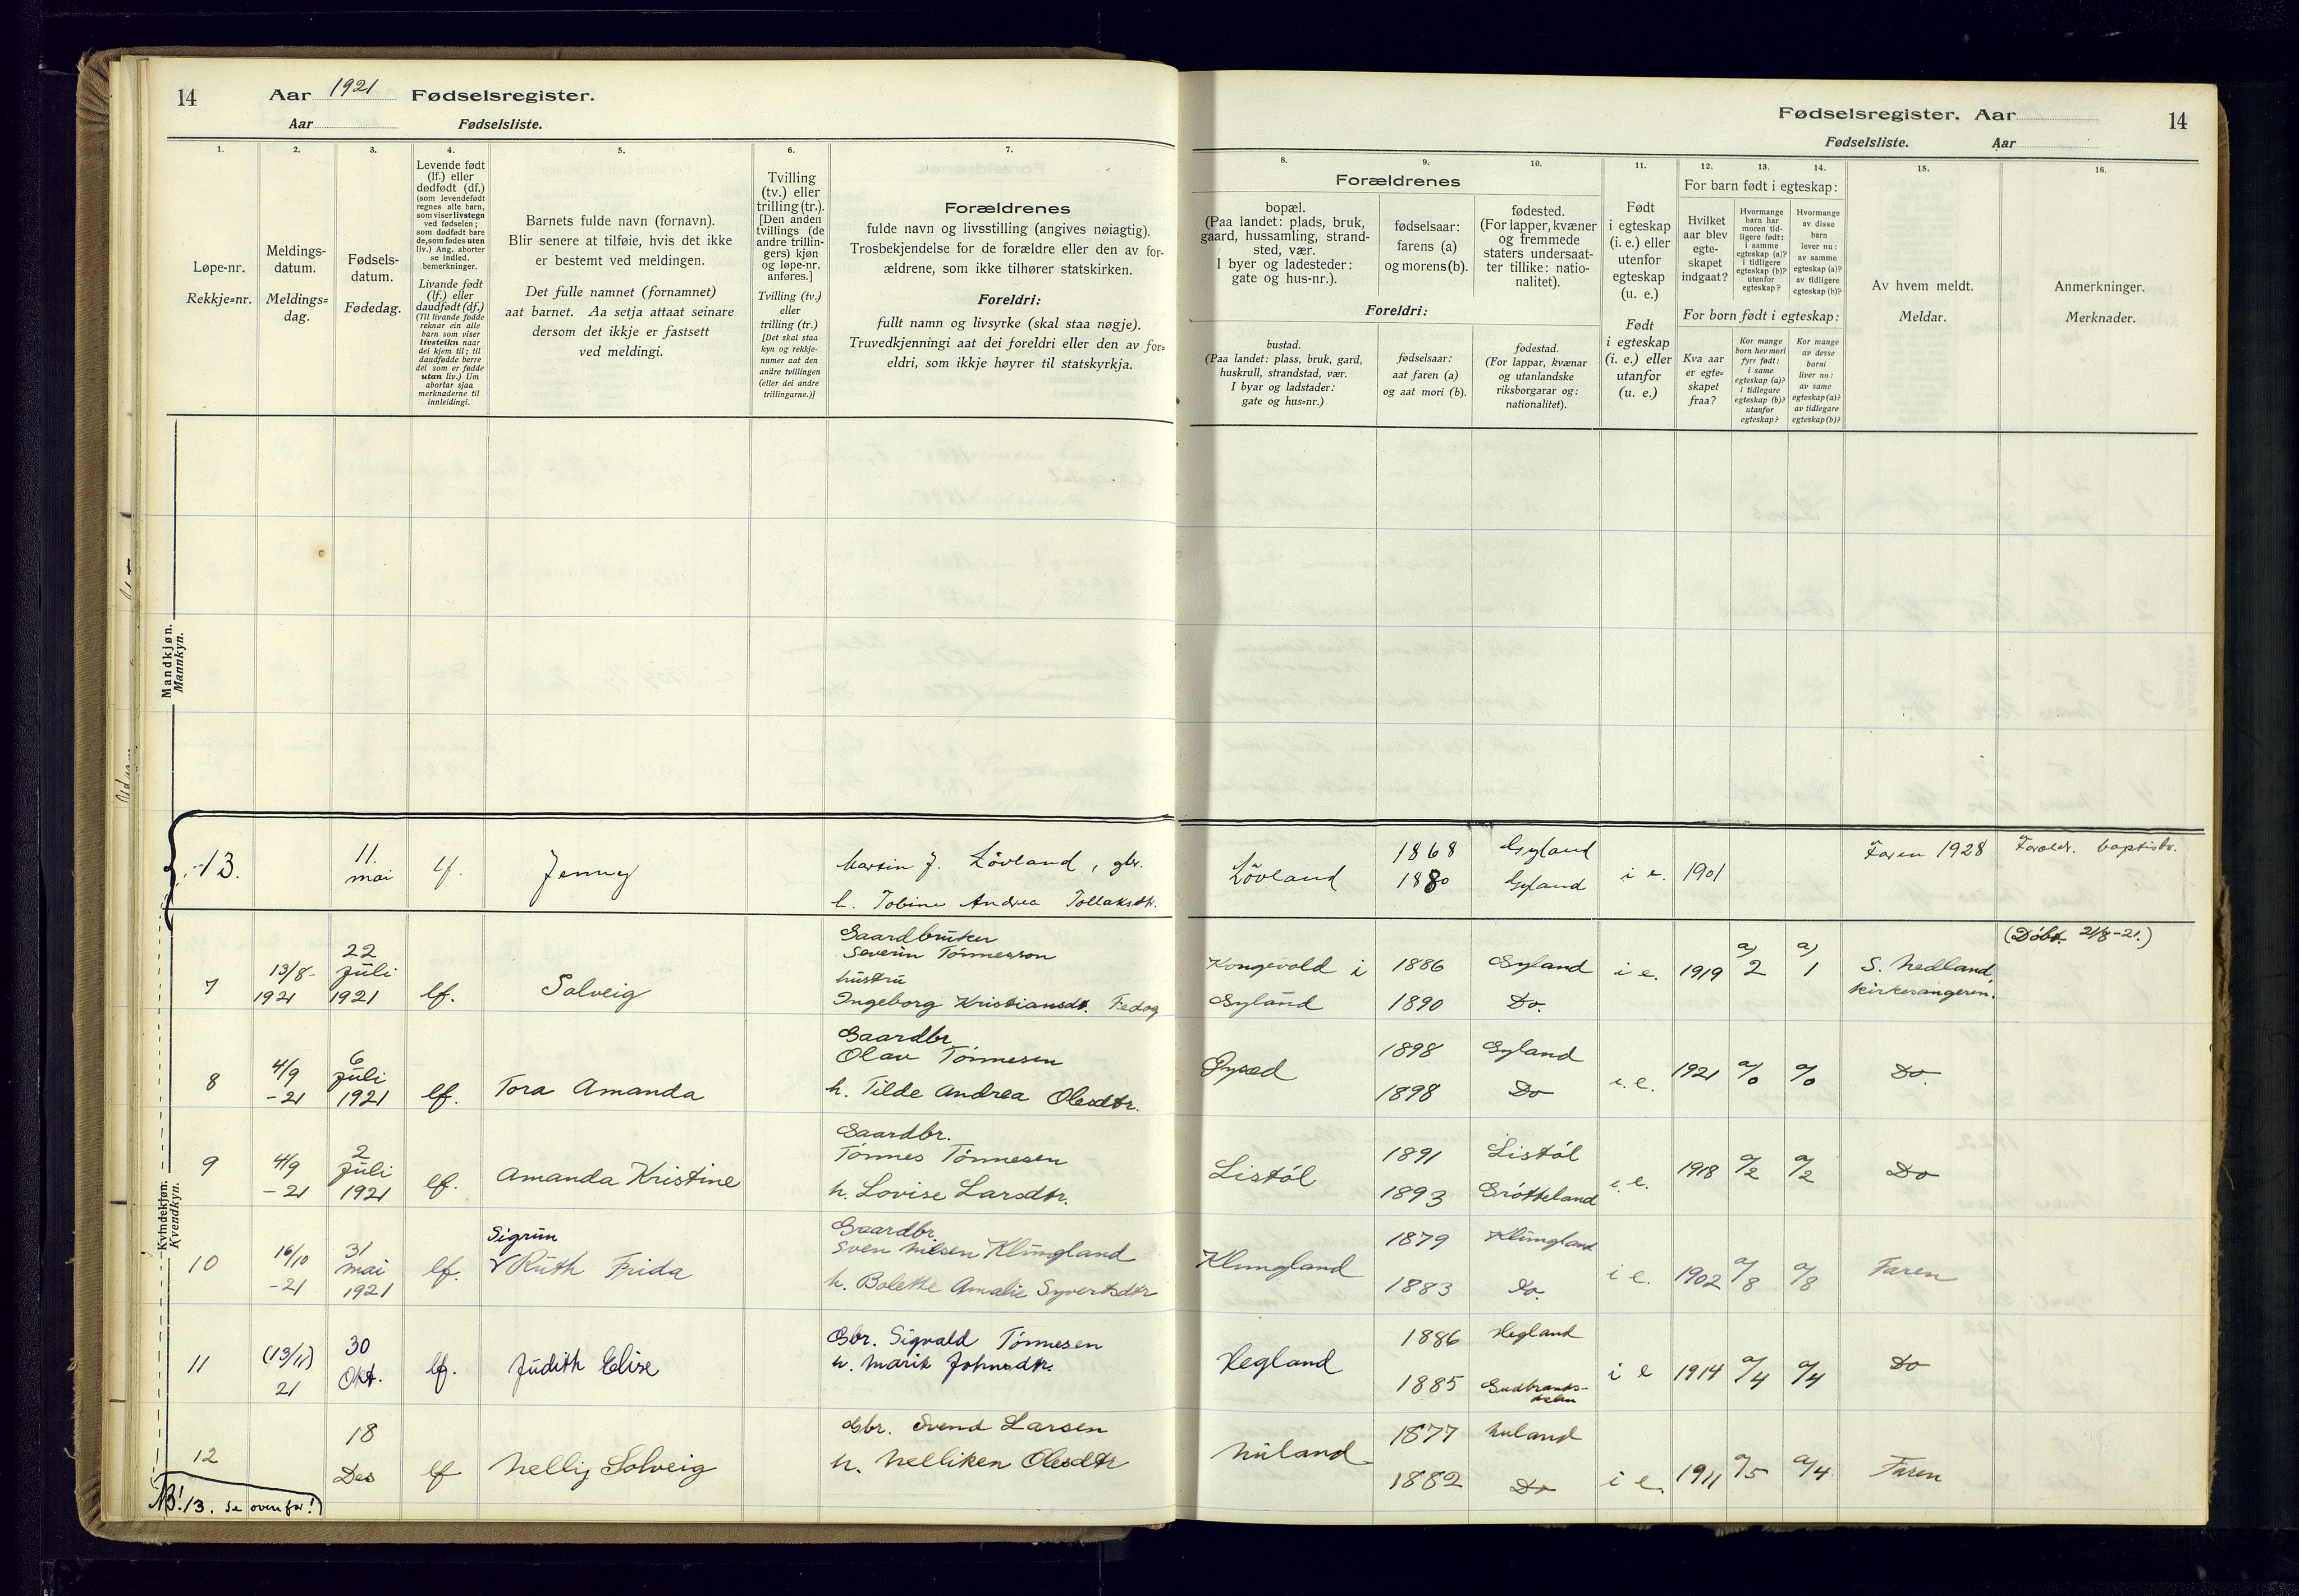 14 Aar 1921 Fødselsregister.
Aar Fødselsliste.
Fødselsregister. Aar 14
Fødselsliste. Aar
1. 2. 3. 4. 5. 6. 7.
8. 9. 10. 11. 12. 13. 14. 15. 16.
Løpe-nr.
Rekkje=nr.
Meldings-
datum.
Meldings=
dag.
Fødsels-
datum.
Fødedag.
Levende født
(lf.) eller
dødfødt (df.)
(som levendefødt
regnes alle barn,
som viser livstegn
ved fødselen;
som dødfødt bare
de, som fødes uten
liv.) Ang. aborter
se indled.
bemerkninger.
Livande født
(lf.) eller
daudfødt (df.)
(Til livande fødde
reknar ein alle
barn som viser
livsteikn naar
dei kjem til; til
daudfødde berre
dei som er fødde
utan liv.) Um
abortar sjaa
merknaderne til
innleidingi.
Barnets fulde navn (fornavn).
Blir senere at tilføie, hvis det ikke
er bestemt ved meldingen.
Det fulle namnet (fornamnet)
aat barnet. Aa setja attaat seinare
dersom det ikkje er fastsett
ved meldingi.
Tvilling
(tv.) eller
trilling (tr.).
[Den anden
tvillings (de
andre trillin-
gers) kjøn
og løpe-nr.
anføres.]
Tvilling (tv.)
eller
trilling (tr.)
[Det skal staa
kyn og rekkje-
numer aat den
andre tvillingen
(eller dei andre
trillingarne.)]
Forældrenes
fulde navn og livsstilling (angives nøiagtig).
Trosbekjendelse for de forældre eller den av for-
ældrene, som ikke tilhører statskirken.
Foreldri:
fullt namn og livsyrke (skal staa nøgje).
Truvedkjenningi aat dei foreldri eller den av for=
eldri, som ikkje høyrer til statskyrkja.
Forældrenes
bopæl.
(Paa landet: plads, bruk,
gaard, hussamling, strand-
sted, vær.
I byer og ladesteder:
gate og hus-nr.).
fødselsaar:
farens (a)
og morens (b).
fødested.
(For lapper, kvæner
og fremmede
staters undersaat-
ter tillike: natio-
nalitet).
Foreldri:
bustad.
(Paa landet: plass, bruk, gard,
huskrull, strandstad, vær.
I byar og ladstader:
gate og hus=nr.)
fødselsaar:
aat faren (a)
og aat mori (b).
fødestad.
(For lappar, kvænar
og utanlandske
riksborgarar og:
nationalitet).
Født
i egteskap
(i. e.) eller
utenfor
egteskap
(u. e.)
Født
i egteskap
(i. e.) eller
utanfor
(u. e.)
For barn født i egteskap:
Hvilket
aar blev
egte-
skapet
indgaat?
Hvormange
barn har
moren tid-
ligere født:
i samme
egteskap (a)?
i tidligere
egteskap (b)?
utenfor
egteskap?
Hvormange
av disse
barn
lever nu:
av samme
egteskap (a)?
av tidligere
egteskap (b)?
For born født i egteskap:
Kva aar
er egte=
skapet
fraa?
Kor mange
born hev mori
fyrr født:
i same
egteskap (a)?
i tidlegare
egteskap (b)?
utanfor
egteskap?
Kor mange
av desse
borni
liver no:
av same
egteskap (a)?
av tidlegare
egteskap (b)?
Av hvem meldt.
Meldar.
Anmerkninger.
Merknader.
Mandkjøn.
Mannkyn.
13. 11. mai lf. Jenny
Martin J. Lövland, gbr.
h. Tobine Andrea Tollaksdtr.
Lövland 1868 Gyland
1880 Gyland
i e. 1901 Faren 1928 Foreldr. baptistr.
Kvindekjøn.
Kvendkyn.
7 13/8-1921 22 Juli 1921 lf. Solveig
Gaardbruker
Severin Tönnesson
hustru
Ingeborg Kristiansdt. Fedog
Kongevold i
Gyland
1886 Gyland
1890 Do.
i e. 1919 a) 2 a) 1 S. Nedland,
kirkesangeren.
(Döbt. 21/8-21.)
8 4/9 -21 6 Juli 1921 lf. Tora Amanda
Gaardbr.
Olav Tönnesen
h. Tilde Andrea Olesdtr.
1898 Gyland
1898 Do
i. e. 1921 a/0 a/0 Do.
9 4/9 -21 2 Juli 1921 lf. Amanda Kristine
Gaardbr.
Tönnes Tönnesen
h. Lovise Larsdtr.
Listöl
1891 Listöl
1893 Grötteland
i. e. 1918 a/2 a/2 Do
10 16/10 -21 31 mai 1921 lf. Sigrun
√ Ruth Frida
Gaardbr.
Sven Nilsen Klungland
h. Bolette Amalie Syvertsdtr
Klungland
1879 Klungland
1883 Do.
i e. 1902 a/8 a/8 Faren
11 (13/11) 21 30 Okt. lf. Judith Elise
Gbr. Sigvald Tönnesen
h. Marie Johnsdtr.
Hegland
1886 Hegland
1885 Gudbrands-
dalen
i e 1914 a/4 a/4 Do
12 18 Des lf Nelly Solveig
Gbr. Svend Larsen
h. Nelliken Olesdtr
Nuland
1877 Nuland
1882 Do
i e. 1911 a/5 a/4 Faren
NB! 13. se ovenfor!)